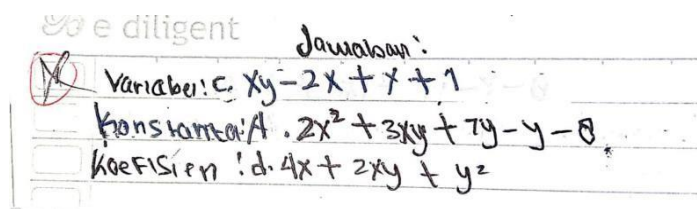 e diligent
Jawaban :
Variabel : C. xy - 2x + x + 1
Konstanta : A. 2x² + 3xy + 7y - y - 8
Koefisien : d. 4x + 2xy + y²